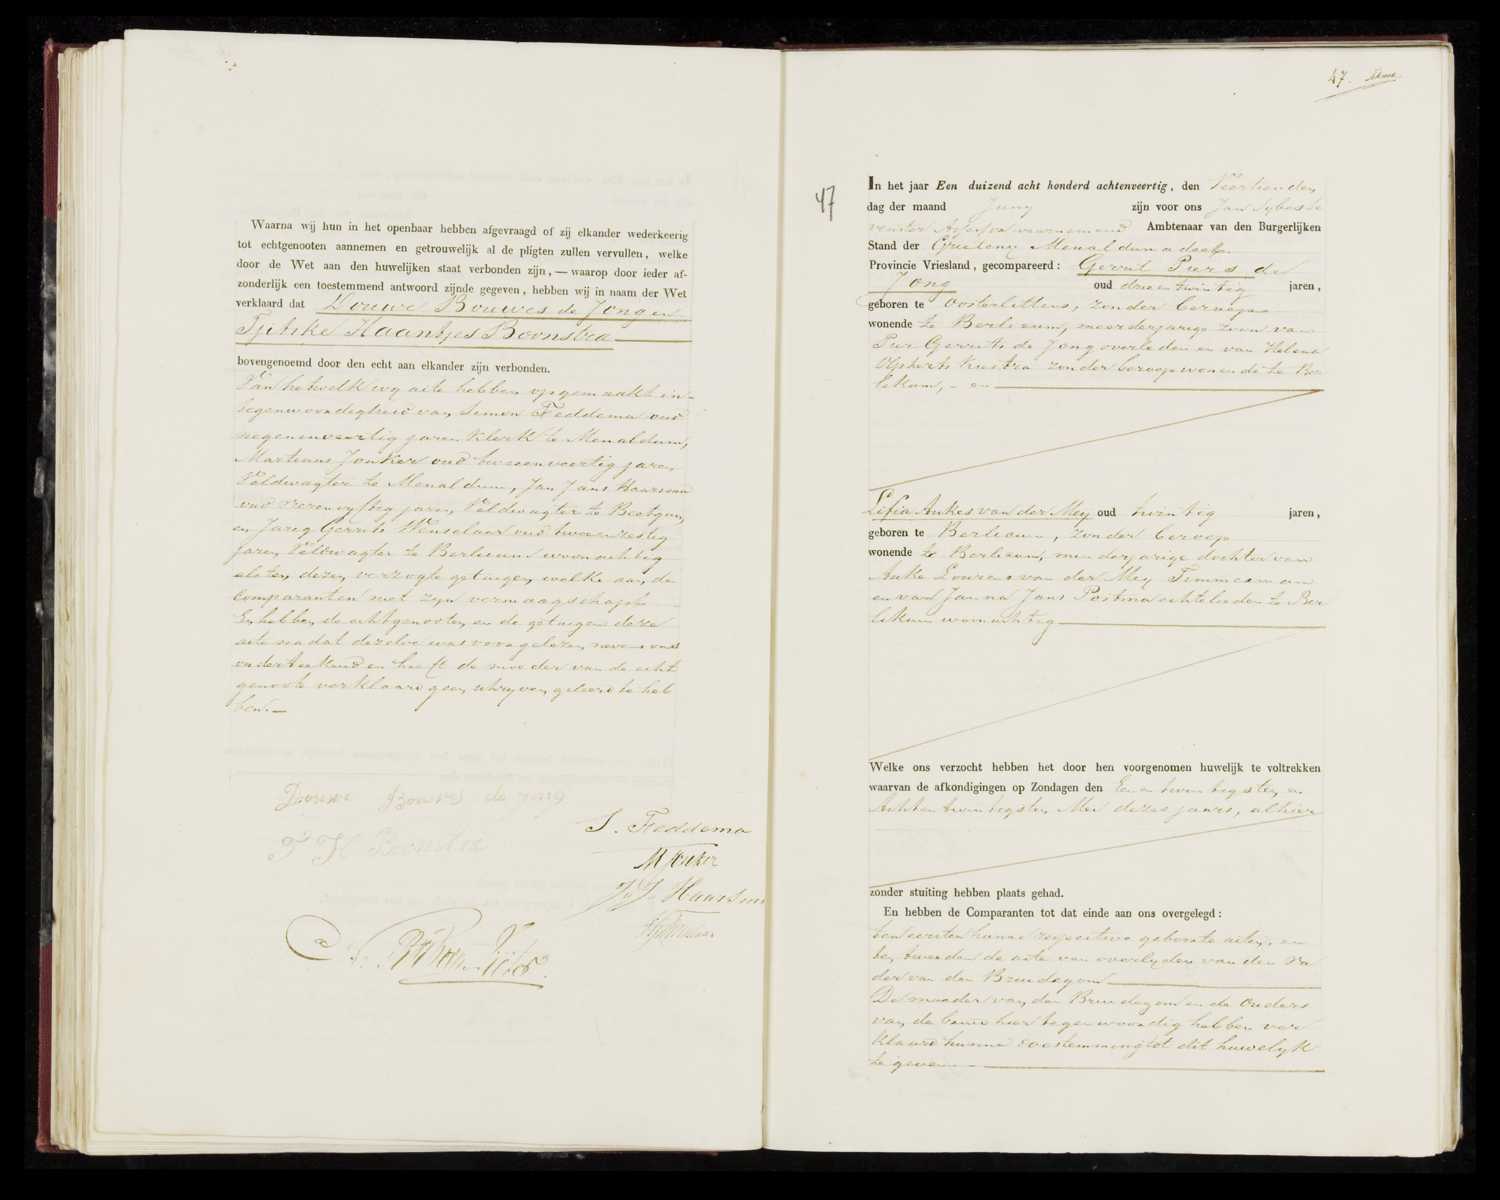 Waarna wij hun in het openbaar hebben afgevraagd of zij elkander wederkeerig
tot echtgenooten aannemen en getrouwelijk al de pligten zullen vervullen, welke
door de Wet aan den huwelijken staat verbonden zijn, — waarop door ieder af-
zonderlijk een toestemmend antwoord zijnde gegeven, hebben wij in naam der Wet
verklaard dat Douwe Bouwes de Jong en
Tjitske Haantjes Boonstra
bovengenoemd door den echt aan elkander zijn verbonden.
Van hetwelk wy acte hebben opgemaakt in
tegenwoordigheid van Simon Feddema oud
negenenveertig jaren Klerk te Menaldum,
Martinus Jonker oud tweeenveertig jaren
Veldwagter te Menaldum, Jan Jans Haarsma
oud vierenvyftig jaren Veldwagter te Beetgum
en Jareg Gerrits Wenselaar oud tweeenzestig
jaren Veldwagter te Berlicum woonachtig
alle ten dezen verzogte getuigen welke aan de
Comparanten niet zyn vermaagschapt
En hebben de echtgenooten en de getuigen deze
acte na dat dezelve was voorgelezen nevens ons
onderteekend en heeft de moeder van de echt
genoote verklaard geen schryven geleerd te heb
ben.
Douwe Bouwes de Jong
T H Boonstra
S. Feddema
M Jonker
J. J. Haarsma
47.
47
In het jaar Een duizend acht honderd achtenveertig, den Veertienden
dag der maand Juny zijn voor ons Jan Sybes
waarnemend Ambtenaar van den Burgerlijken
Stand der Grieteny Menaldumadeel
Provincie Vriesland, gecompareerd: Gerrit Piers de
Jong oud drieentwintig jaren,
geboren te Oosterlittens, zonder beroep
wonende te Berlicum, meerderjarige zoon van
Pier Gerrits de Jong overleden en van Helena
Ulpherts Kuistra zonder beroep wonende te Ber
likum, - en
Lifia Ankes van der Mey oud twintig jaren,
geboren te Berlicum, zonder beroep
wonende te Berlicum, minderjarige dochter van
Anke Lourens van der Mey Timmerman
en van Janna Jans Postma echtelieden te Ber
likum woonachtig
Welke ons verzocht hebben het door hen voorgenomen huwelijk te voltrekken
waarvan de afkondigingen op Zondagen den Een en twintigsten en
Achten twintigsten Mei dezes jaars, alhier
zonder stuiting hebben plaats gehad.
En hebben de Comparanten tot dat einde aan ons overgelegd:
ten eersten hunne respective geboorte acten, en
ten tweeden de acte van overlyden van den Va
der van den Bruidegom
De moeder van den Bruidegom en de Ouders
van de bruid hier tegenwoordig hebben ver
klaard hunne toestemming tot dit huwelyk
te geven